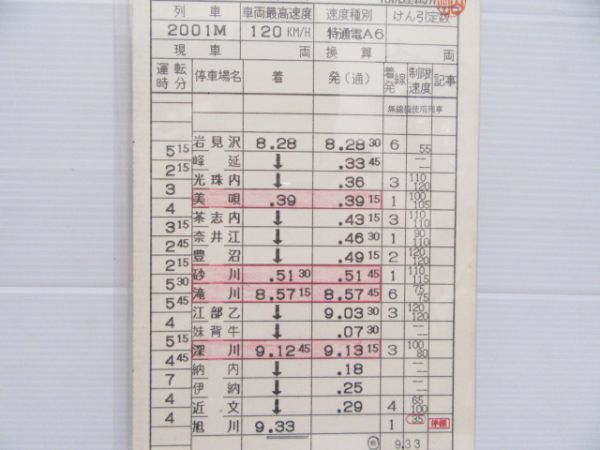 列車 車両最高速度 速度種別 けん引定数
2001M 120KM/H 特通電A6
現車 両 換算 両
運転時分 停車場名 着 発(通) 着発線 制限速度 記事
無線機使用列車
岩見沢 8.28 8.28 30 6 55
5 15
峰延 ↓ .33 45 — —
2 15
光珠内 ↓ .36 3 110 120
3
美唄 .39 .39 15 1 100 105
4
茶志内 ↓ .43 15 3 110 110
3 15
奈井江 ↓ .46 30 1 90 110
2 45
豊沼 ↓ .49 15 2 120 120
2 15
砂川 .51 30 .51 45 1 110 115
5 30
滝川 8.57 15 8.57 45 6 75 75
5 45
江部乙 ↓ 9.03 30 3 120 120
4
妹背牛 ↓ .07 30 — —
5 15
深川 9.12 45 9.13 15 3 100 80
4 45
納内 ↓ .18 — —
7
伊納 ↓ .25 — —
4
近文 ↓ .29 4 65 100
4
旭川 9.33 1 35
9.33